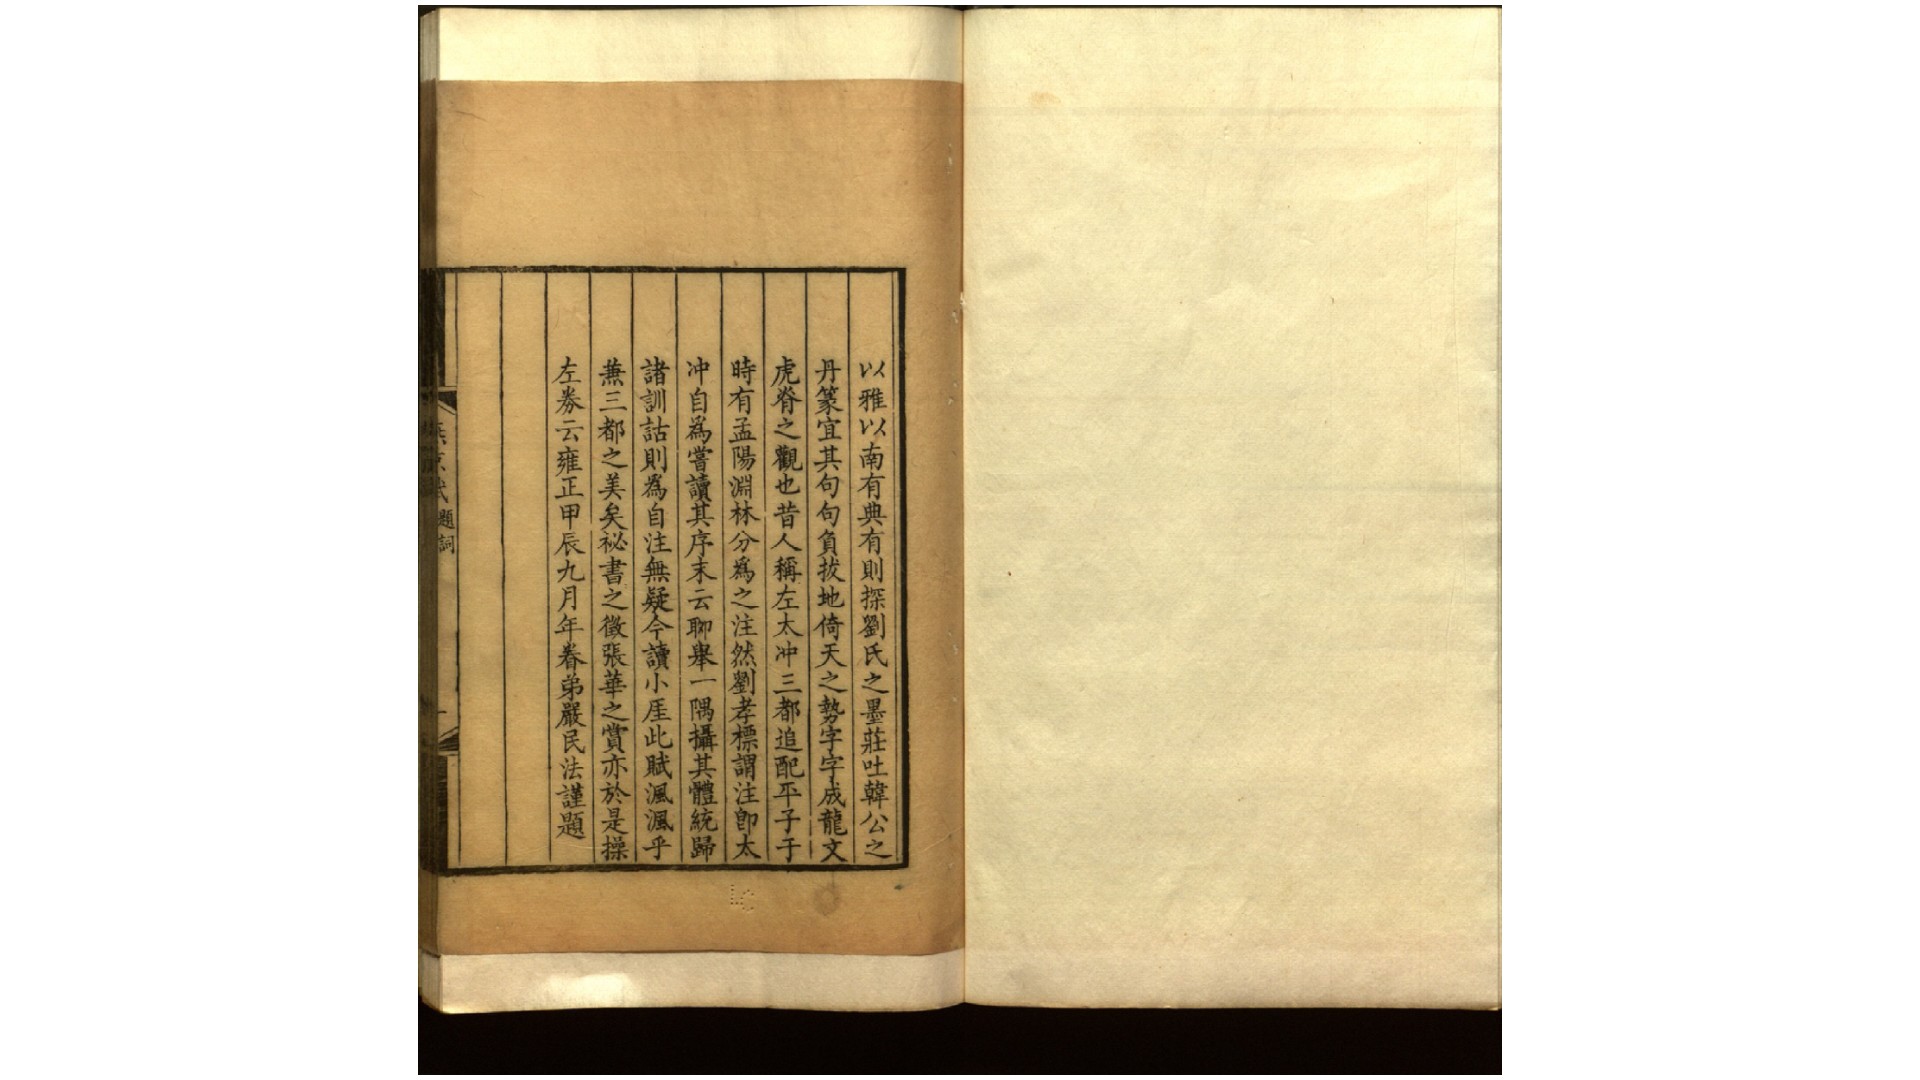 以雅以南有典有則探劉氏之墨莊吐韓公之
丹篆宜其句句負拔地倚天之勢字字成龍文
虎脊之觀也昔人稱左太冲三都追配平子于
時有孟陽淵林分爲之注然劉孝標謂注卽太
冲自爲嘗讀其序末云聊舉一隅攝其體統歸
諸訓詁則爲自注無疑今讀小厓此賦渢渢乎
蕪三都之美矣祕書之徵張華之賞亦於是操
左券云雍正甲辰九月年眷弟嚴民法謹題
京賦 題詞